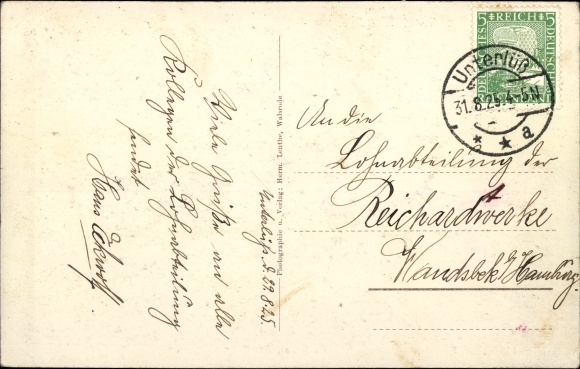 Unterlüß d. 29.8.25.
Viele Grüße an alle
Kollegen der Lohnabteilung
sendet
Hans
Photographie u. Verlag: Herm. Lenthe, Walsrode
An die
Lohnabteilung der
Reichardtwerke
Wandsbek b/Hamburg.
5 REICH 5
Unterlüß
31.8.25.4-5N
* * a